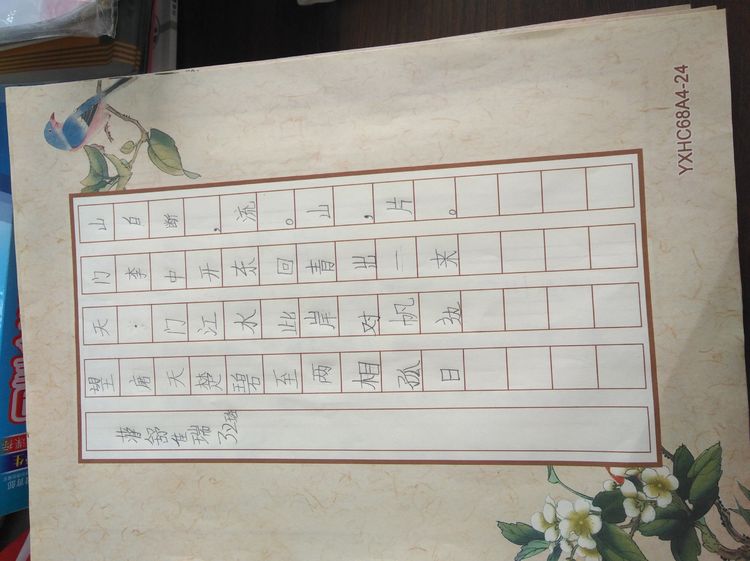 望天门山
唐·李白
天门中断
楚江开，
碧水东流
至此回。
两岸青山
相对出，
孤帆一片
日边来。
YXHC68A4-24